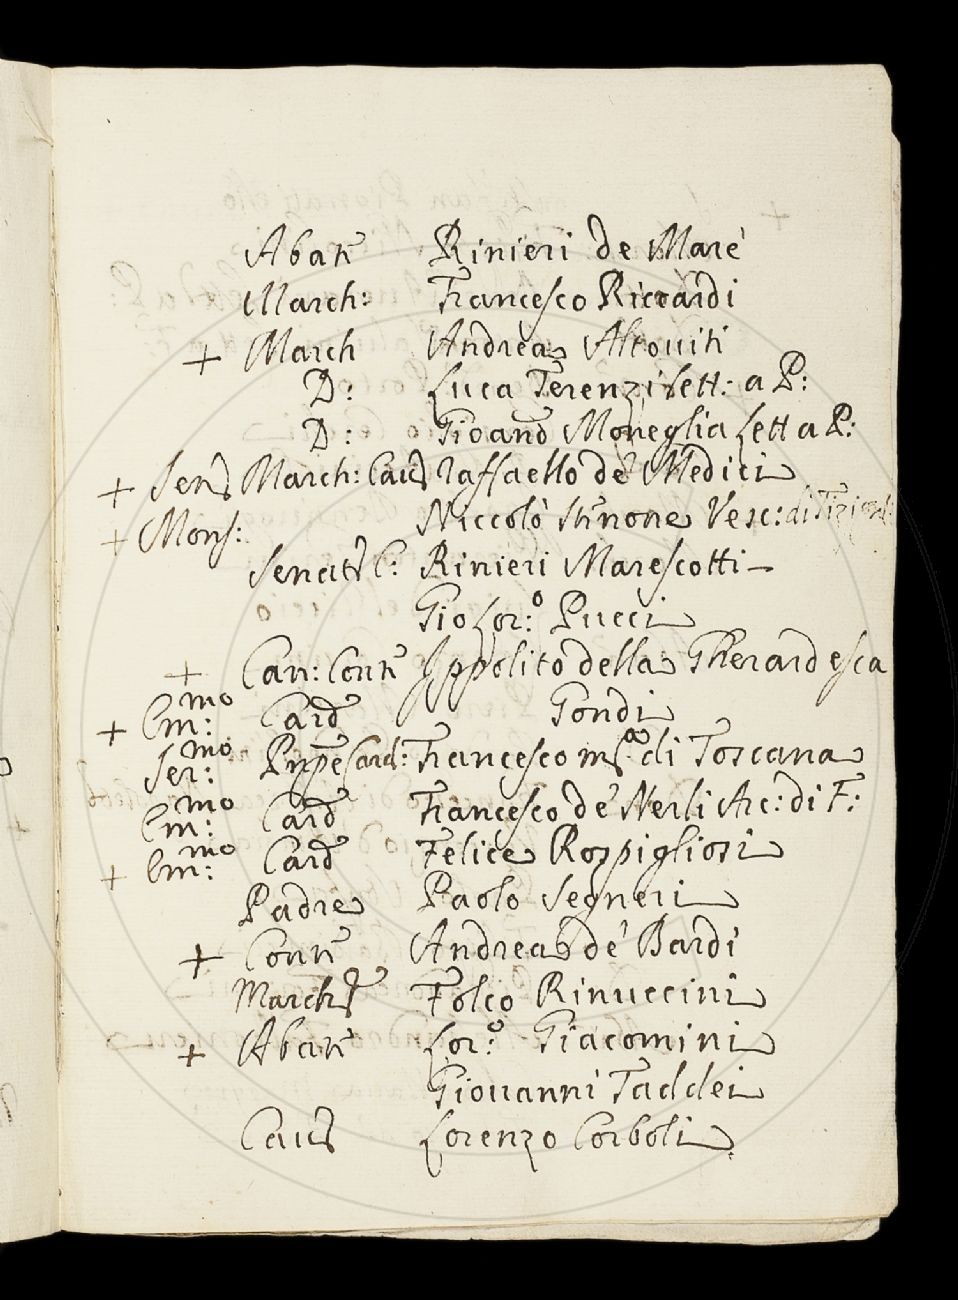 Abate Rinieri de Marè
March: Francesco Riccardi
+ March Andrea Altouiti
D: Luca Terenzi Lett: a P:
D: Gioanð Moneglia Lett a P:
+ Sen March: Cau Raffaello de' Medici
+ Mons: Niccolò Stenone Vesc: di
Senat C: Rinieri Marescotti
Gio Lor:o Pucci
+ Can: Conte Ippolito della Gherardesca
+ Em:mo Card Gondi
Ser:mo Pnpe Card: Francesco di Toscana
Em:mo Card Francesco de' Nerli Arc: di F:
+ Em:mo Card Felice Rospigliosi
Padre Paolo Segneri
+ Conte Andrea de' Bardi
March Folco Rinuccini
+ Abate Lor:o Giacomini
Giouanni Taddei
Cau Lorenzo Corboli